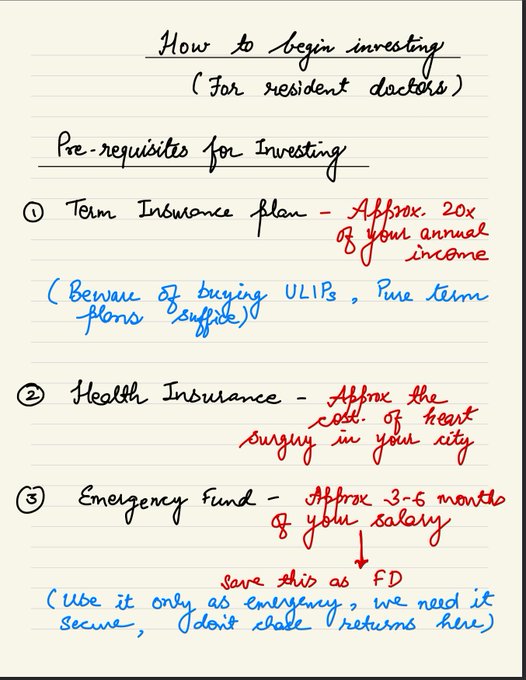 How to begin investing
(For resident doctors)
Pre-requisites for Investing
① Term Insurance plan - Approx. 20x
of your annual
income
(Beware of buying ULIPs, Pure term
plans suffice)
② Health Insurance - Approx the
cost. of heart
surgery in your city
③ Emergency Fund - Approx -3-6 months
of your salary
↓
save this as FD
(Use it only as emergency, we need it
secure, don't chase returns here)